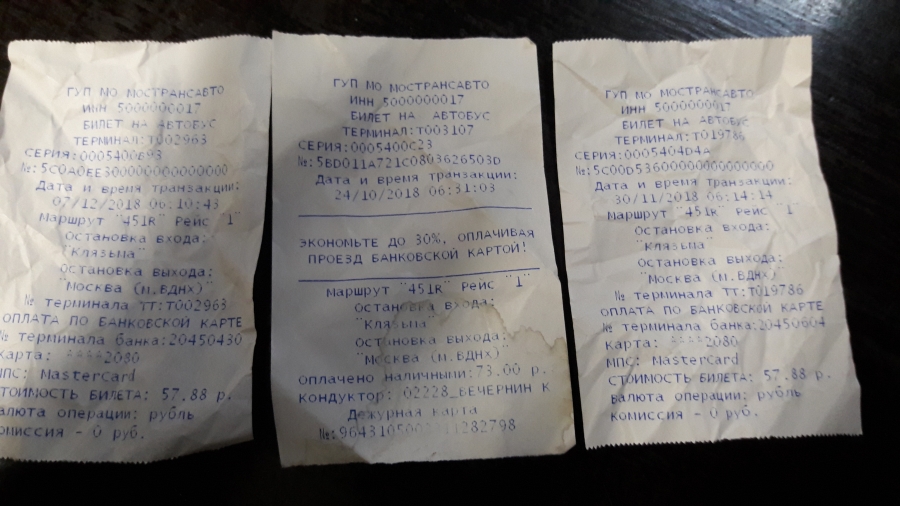 ГУП МО МОСТРАНСАВТО
ИНН 5000000017
БИЛЕТ НА АВТОБУС
ТЕРМИНАЛ:Т002963
СЕРИЯ:0005400693
№:5C0A0EE3000000000000000
Дата и время транзакции:
07/12/2018 06:10:43
Маршрут "451К" Рейс "1"
Остановка входа:
"Клязьма"
Остановка выхода:
"Москва (м.ВДНХ)"
№ терминала ТТ:Т002963
ОПЛАТА ПО БАНКОВСКОЙ КАРТЕ
№ терминала банка:20450430
Карта: ****2080
МПС: MasterCard
СТОИМОСТЬ БИЛЕТА: 57.88 р.
валюта операции: рубль
комиссия - 0 руб.
ГУП МО МОСТРАНСАВТО
ИНН 5000000017
БИЛЕТ НА АВТОБУС
ТЕРМИНАЛ:Т003107
СЕРИЯ:0005400C23
№:5BD011A721C0803626503D
Дата и время транзакции:
24/10/2018 06:31:03
ЭКОНОМЬТЕ ДО 30%, ОПЛАЧИВАЯ
ПРОЕЗД БАНКОВСКОЙ КАРТОЙ!
Маршрут "451К" Рейс "1"
Остановка входа:
"Клязьма"
Остановка выхода:
"Москва (м.ВДНХ)"
Оплачено наличными:73.00 р.
Кондуктор: 02228_ВЕЧЕРНИН К
Дежурная карта
ГУП МО МОСТРАНСАВТО
ИНН 5000000017
БИЛЕТ НА АВТОБУС
ТЕРМИНАЛ:Т019786
СЕРИЯ:0005404D4A
№:5C00D5360000000000000000
Дата и время транзакции:
30/11/2018 06:14:14
Маршрут "451К" Рейс "1"
Остановка входа:
"Клязьма"
Остановка выхода:
"Москва (м.ВДНХ)"
№ терминала ТТ:Т019786
ОПЛАТА ПО БАНКОВСКОЙ КАРТЕ
№ терминала банка:20450604
Карта: ****2080
МПС: MasterCard
СТОИМОСТЬ БИЛЕТА: 57.88 р.
валюта операции: рубль
комиссия - 0 руб.